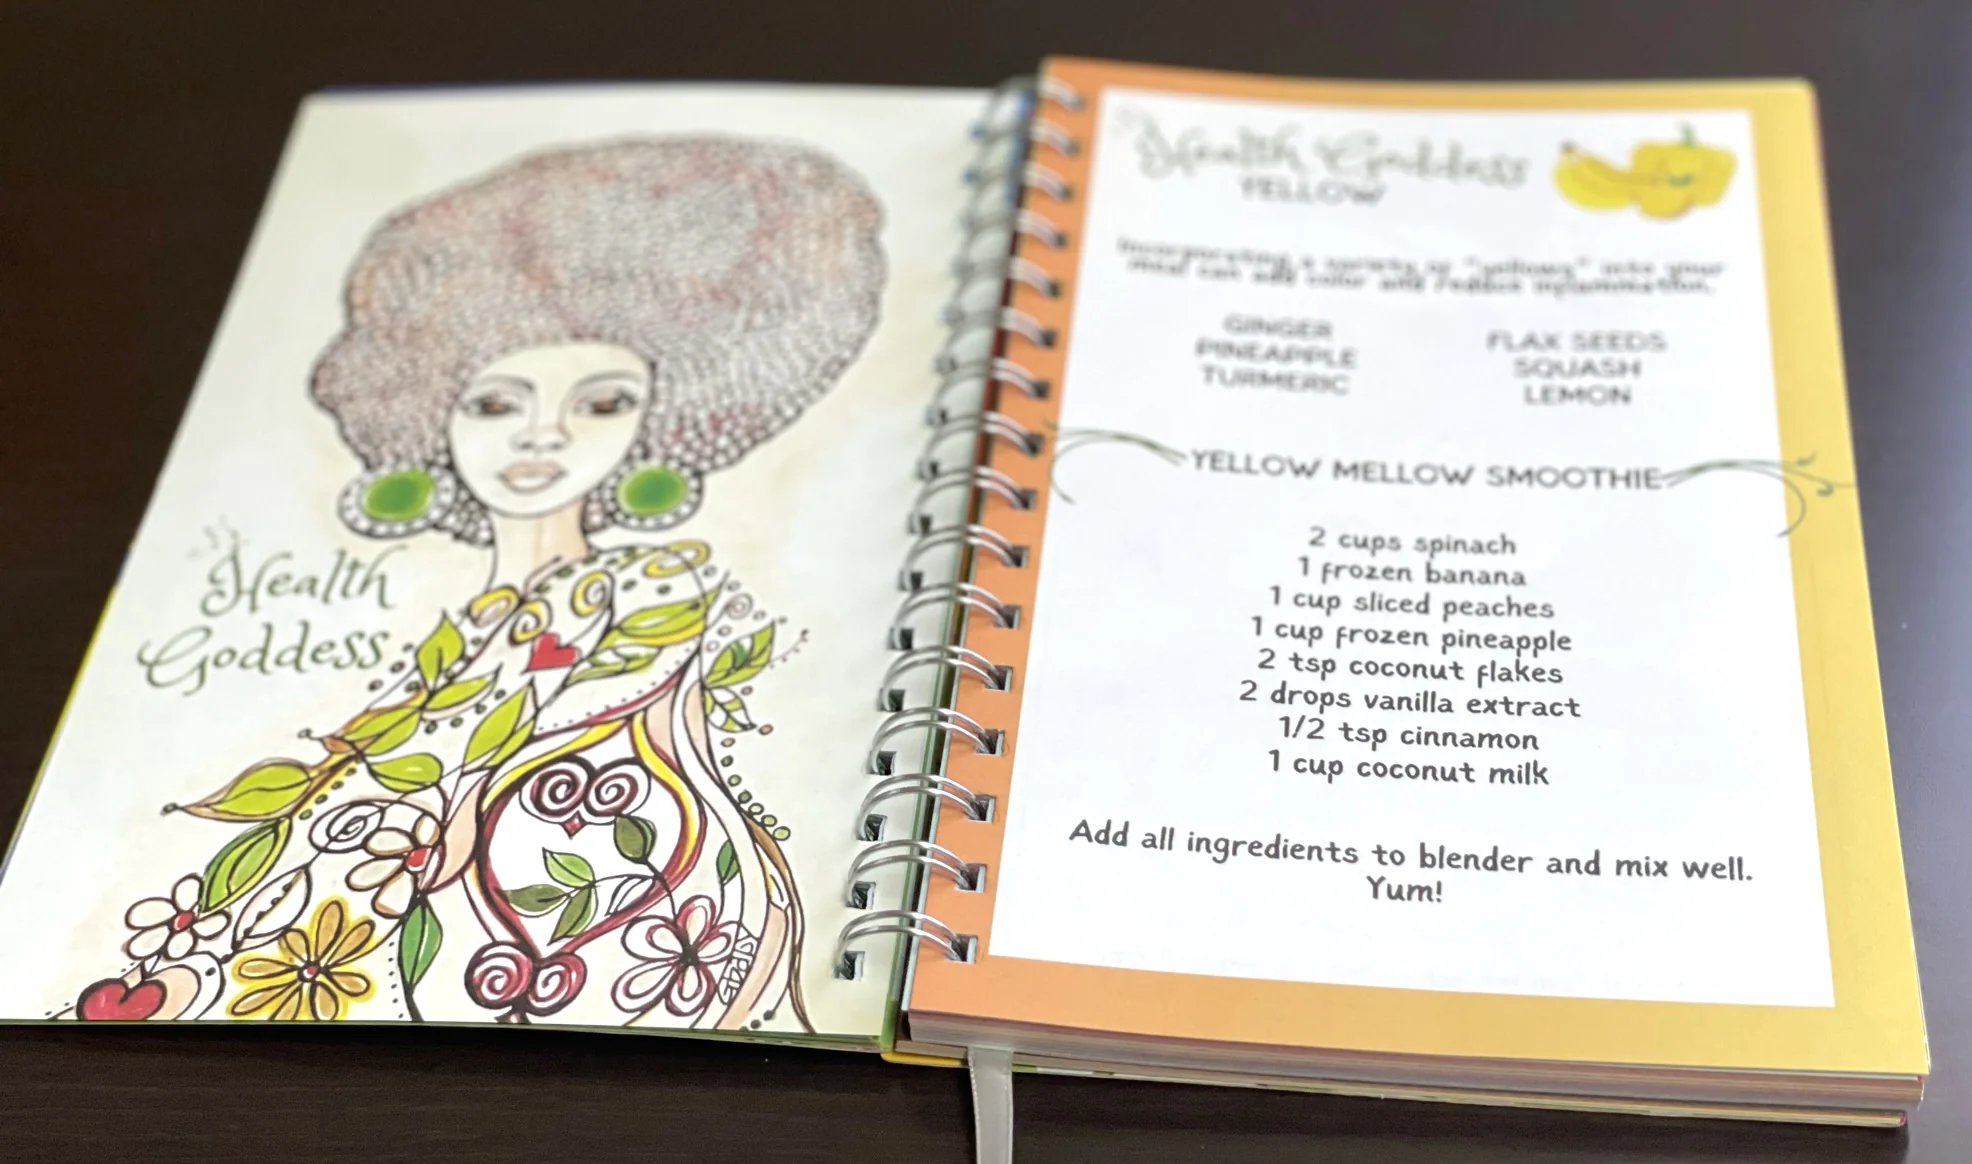 Health
Goddess
Health Goddess
YELLOW
Incorporating a variety of "yellows" into your
meal can add color and reduce inflammation.
GINGER
PINEAPPLE
TURMERIC
FLAX SEEDS
SQUASH
LEMON
YELLOW MELLOW SMOOTHIE
2 cups spinach
1 frozen banana
1 cup sliced peaches
1 cup frozen pineapple
2 tsp coconut flakes
2 drops vanilla extract
1/2 tsp cinnamon
1 cup coconut milk
Add all ingredients to blender and mix well.
Yum!